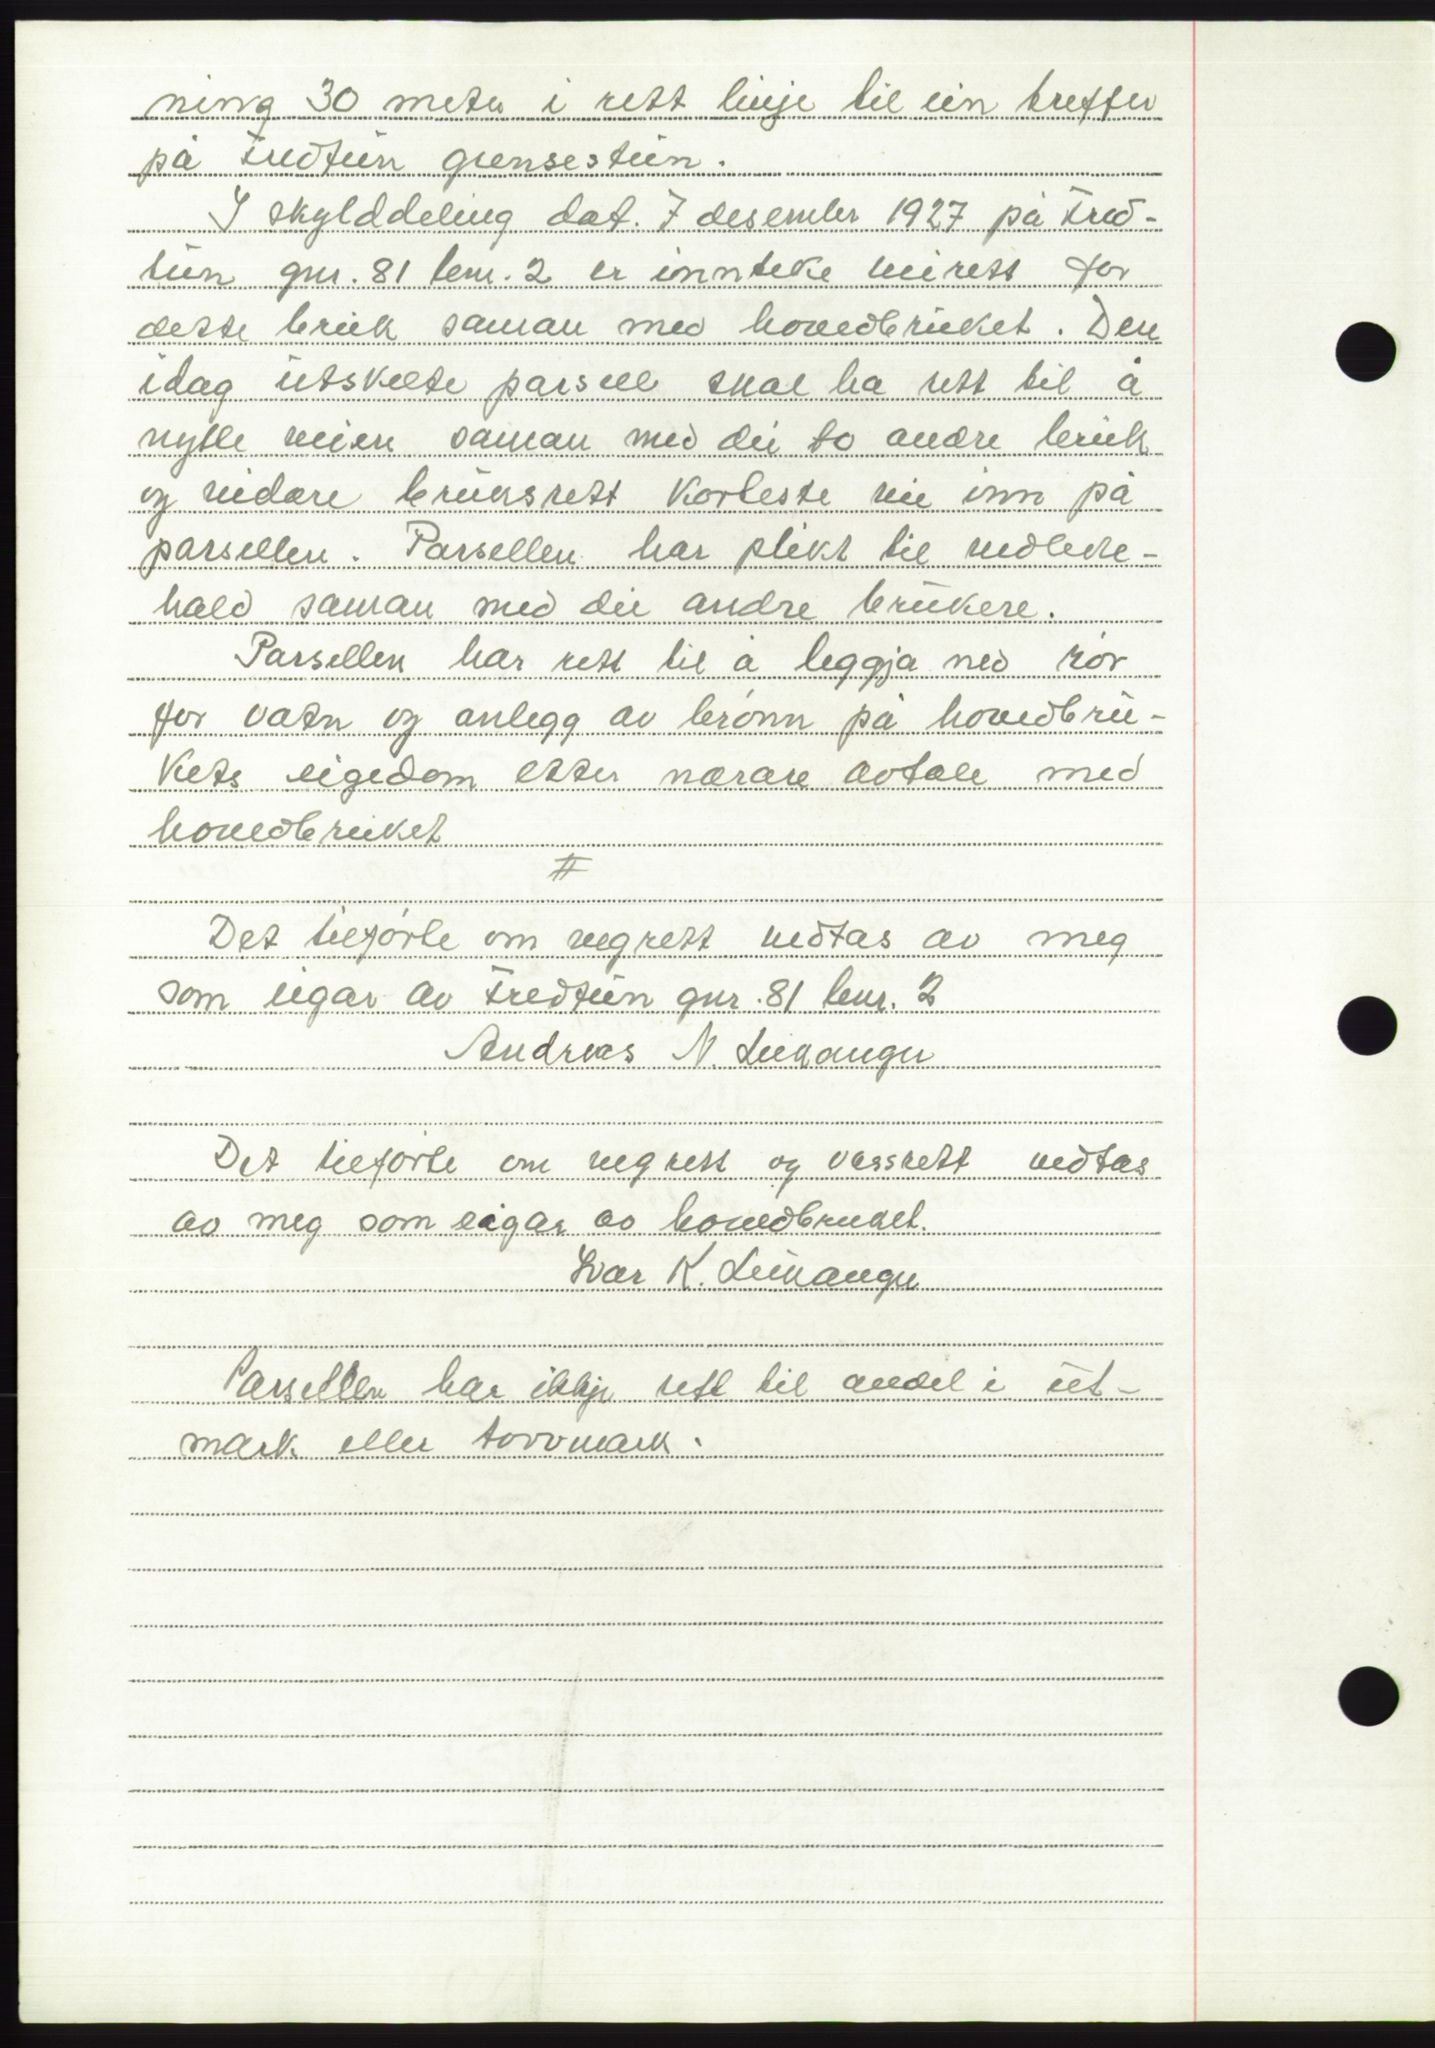 ning 30 meter i rett linje til ein treffer
på Fredtun grensestein.
I skylddeling dat. 7 desember 1927 på Fred-
tun gnr. 81 bnr. 2 er innteke veirett for
dette bruk saman med hovedbruket. Den
idag utskilte parsell skal ha rett til å
nytte veien saman med dei to andre bruk
og vidare bruksrett korteste vei inn på
parsellen. Parsellen har plikt til vedlike-
hald saman med dei andre brukere.
Parsellen har rett til å leggja ned rör
for vatn og anlegg av brönn på hovedbru-
kets eigedom etter nærare avtale med
hovedbruket
Det tilförte om vegrett vedtas av meg
som eigar av Fredtun gnr. 81 bnr. 2
Andreas N. Leikanger
Det tilförte om vegrett og vassrett vedtas
av meg som eigar av hovedbruket.
Ivar K. Leikanger
Parsellen har ikkje rett til andel i ut-
mark eller torvmark.